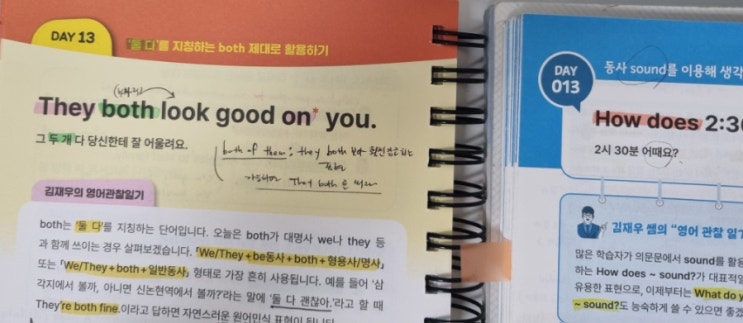 DAY 13
'둘 다'를 지칭하는 both 제대로 활용하기
They both look good on* you.
그 두 개 다 당신한테 잘 어울려요.
both of them : they both 보다
They both
김재우의 영어관찰일기
both는 '둘 다'를 지칭하는 단어입니다. 오늘은 both가 대명사 we나 they 등
과 함께 쓰이는 경우 살펴보겠습니다. 「We/They + be동사 + both + 형용사/명사」
또는 「We/They + both + 일반동사」 형태로 가장 흔히 사용됩니다. 예를 들어 '삼
각지에서 볼까, 아니면 신논현역에서 볼까?'라는 말에 '둘 다 괜찮아.'라고 할 때
They're both fine.이라고 답하면 자연스러운 원어민식 표현이 됩니다
DAY
013
동사 sound를 이용해 생각
How does 2:3
2시 30분 어때요?
김재우 쌤의 "영어 관찰 일기
많은 학습자가 의문문에서 sound를 활
하는 How does ~ sound?가 대표적일
유용한 표현으로, 이제부터는 What do y
~ sound?도 능숙하게 쓸 수 있으면 좋겠